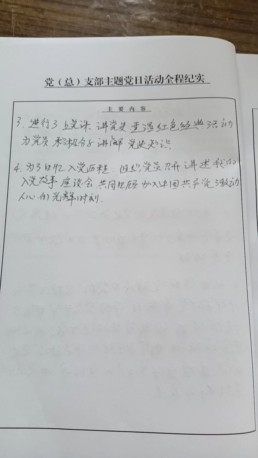 党（总）支部主题党日活动全程纪实
主要内容
3. 进行了上党课，讲党史 重温红色经典 活动
为党员 积极分子 讲解 党史知识。
4. 为了回忆入党历程 组织党员召开 讲述我的
入党故事 座谈会 共同回顾 加入中国共产党 激动
人心的光辉时刻